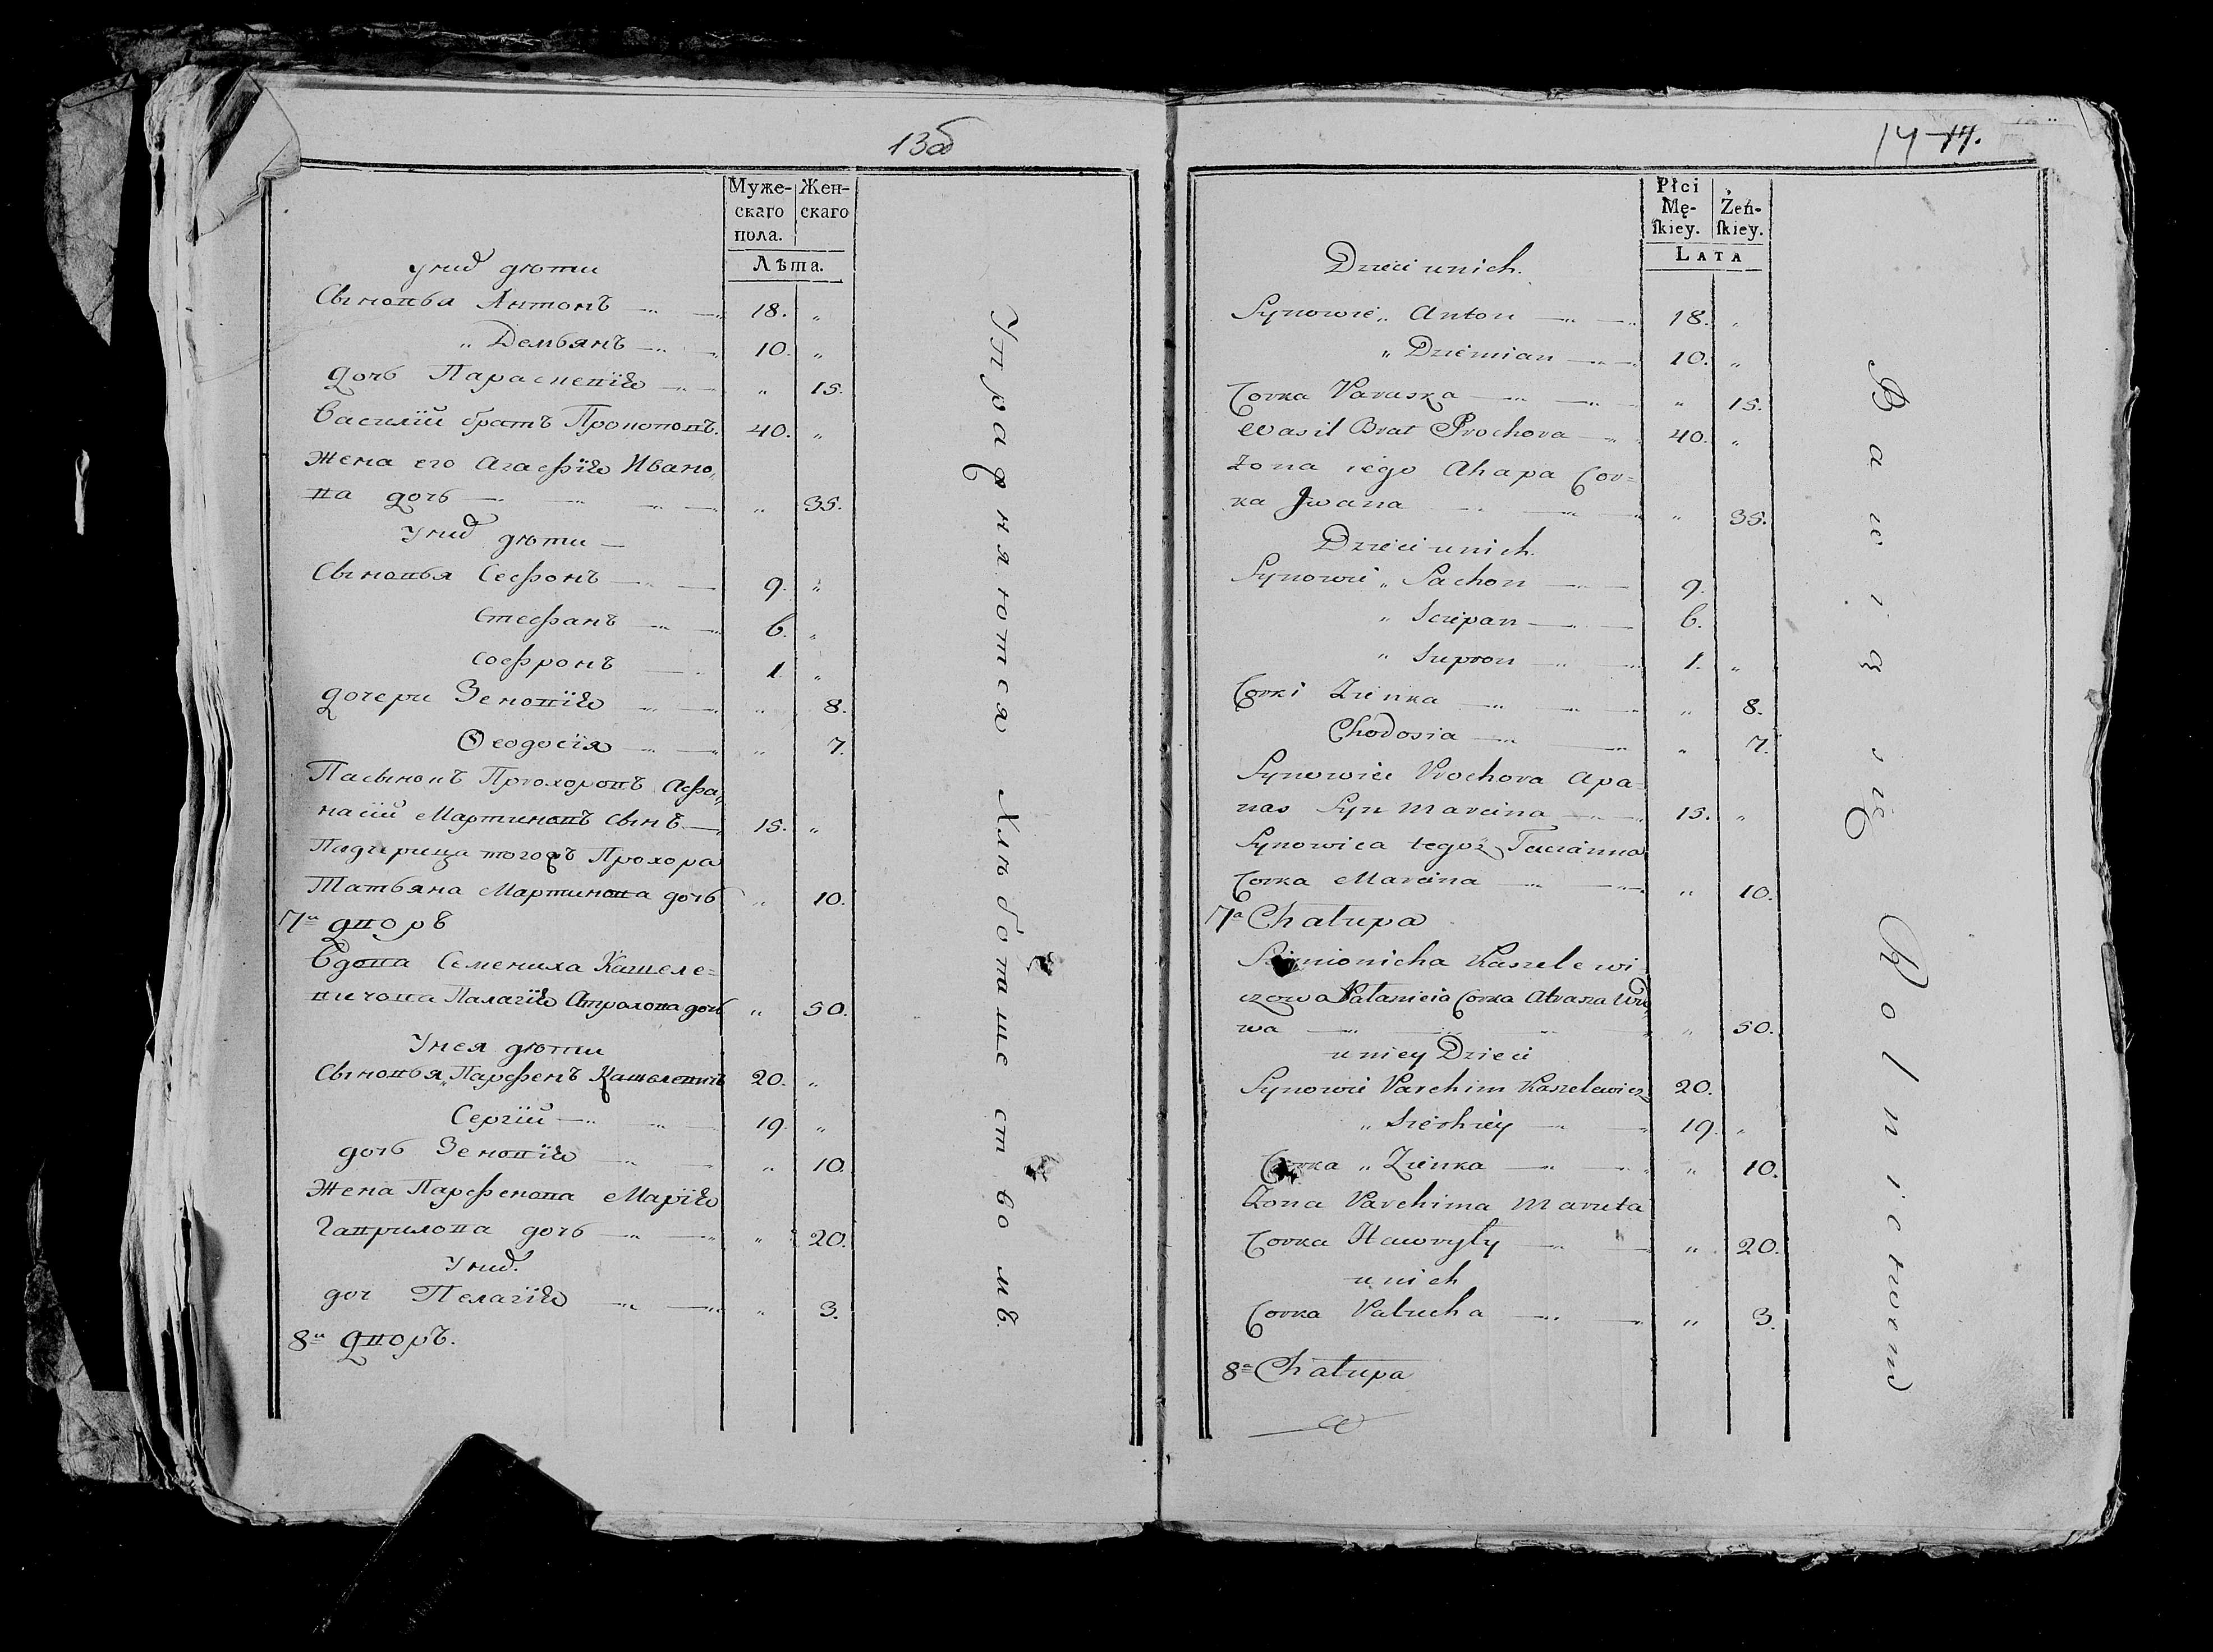 13об
Муже-
скаго
пола.
Жен-
скаго
Лѣта.
У нихъ дѣти
Сыновья Антонъ 18. „
„ Демьянъ 10. „
дочь Параскевія „ 15.
Василій братъ Прокоповъ. 40. „
Жена его Агафія Ивано„
ва дочь „ 35.
У нихъ дѣти
Сыновья Сафонъ 9. „
Стефанъ 6. „
Софронъ 1. „
дочери Зеновія „ 8.
Ѳеодосія „ 7.
Пасынокъ Прохоровъ Афа„
насій Мартиновъ сынъ 15. „
Падчерица тогожъ Прохора
Татьяна Мартинова дочь „ 10.
7й дворъ
Вдова Семениха Кашеле=
вичова Палагія дочь „ 50.
У нея дѣти
Сыновья „ Парфенъ Кашелевичъ 20. „
Сергій 19. „
дочь Зеновія „ 10.
Жена Парфенова Марія
Гаврилова дочь „ 20.
У нихъ
доч Пелагія „ 3.
8й дворъ.
Упражняются хлѣбопашествомъ.
14 14.
Płci
Mę-
ſkiey.
Żeń-
ſkiey.
LATA
Dzieci u nich.
Synowie „ Anton 18. „
„ Dziemian 10. „
Corka Paraszka „ 15.
Wasil Brat Prochora 40. „
Zona iego Ahapa Cor=
ka Jwana „ 35.
Dzieci u nich.
Synowie „ Sachon 9.
„ Sciepan 6.
„ Supron 1. „
Corki Zienka „ 8.
Chodosia „ 7.
Synowiec Prochora Apa=
nas Syn Marcina 15. „
Synowica tegoż Tacianna
Corka Marcina „ 10.
7a Chałupa
Siemionicha Kaszelewi
czowa Pałanieia Corka Wdo
wa „ 50.
u niey Dzieci
Synowie Parchim Kaszelewicz 20.
„ Sierhiey 19. „
Corka „ Zienka „ 10.
Zona Parchima Maruta
Corka Hawryły „ 20.
u nich
Corka Pałucha „ 3.
8a Chałupa
Bawią się Rolnictwem